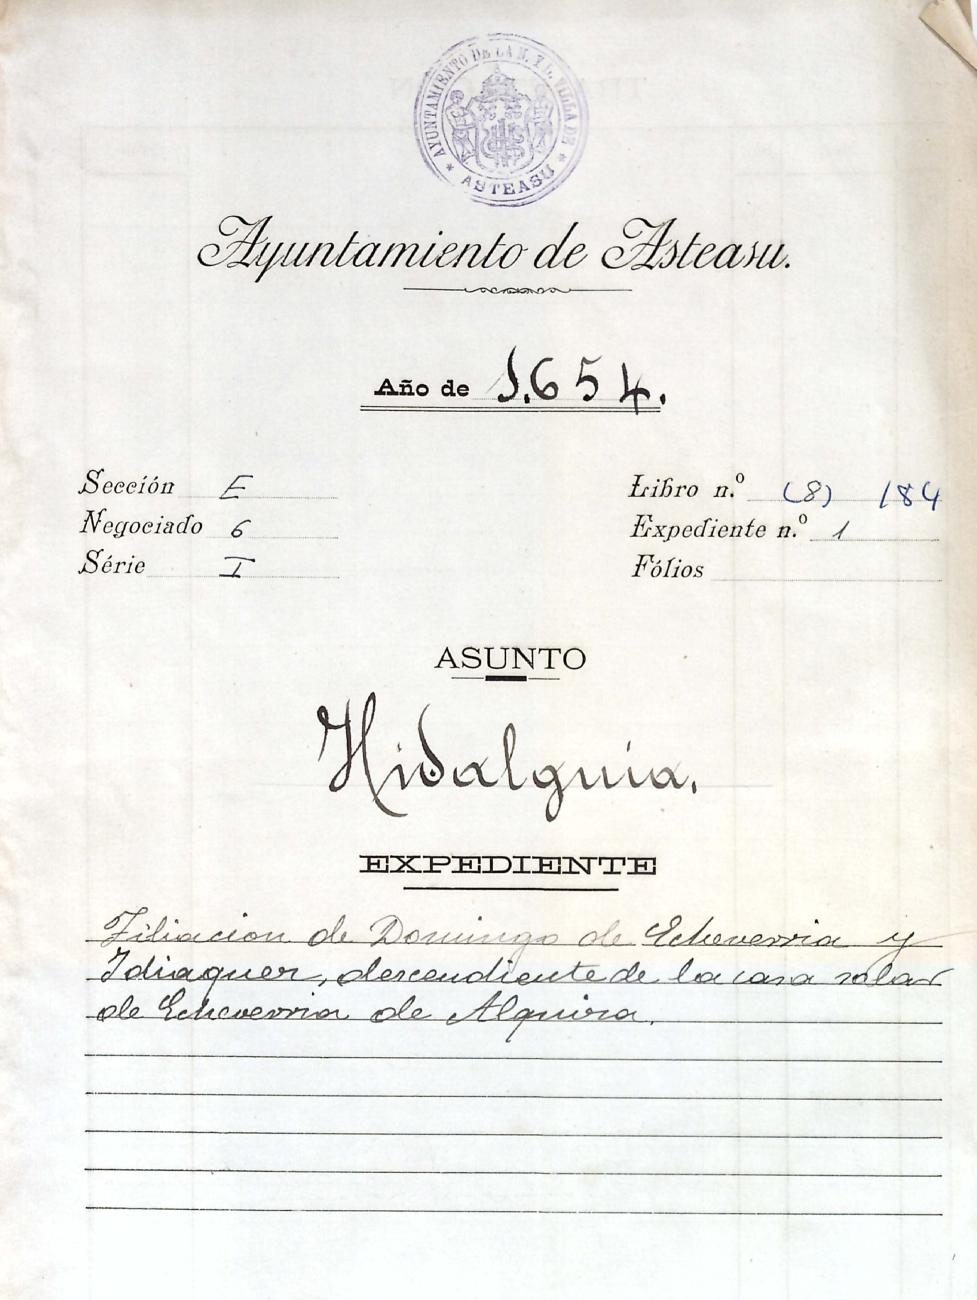 AYUNTAMIENTO DE LA N. Y L. VILLA DE
* ASTEASU *
Ayuntamiento de Asteasu.
Año de 1.654.
Sección E
Negociado 6
Série I
Libro n.º (8) 184
Expediente n.º 1
Fólios
ASUNTO
Hidalguia.
EXPEDIENTE
Filiacion de Domingo de Echeverria y
Idiaquer, descendiente de la casa solar
de Echeverria de Alquiza.